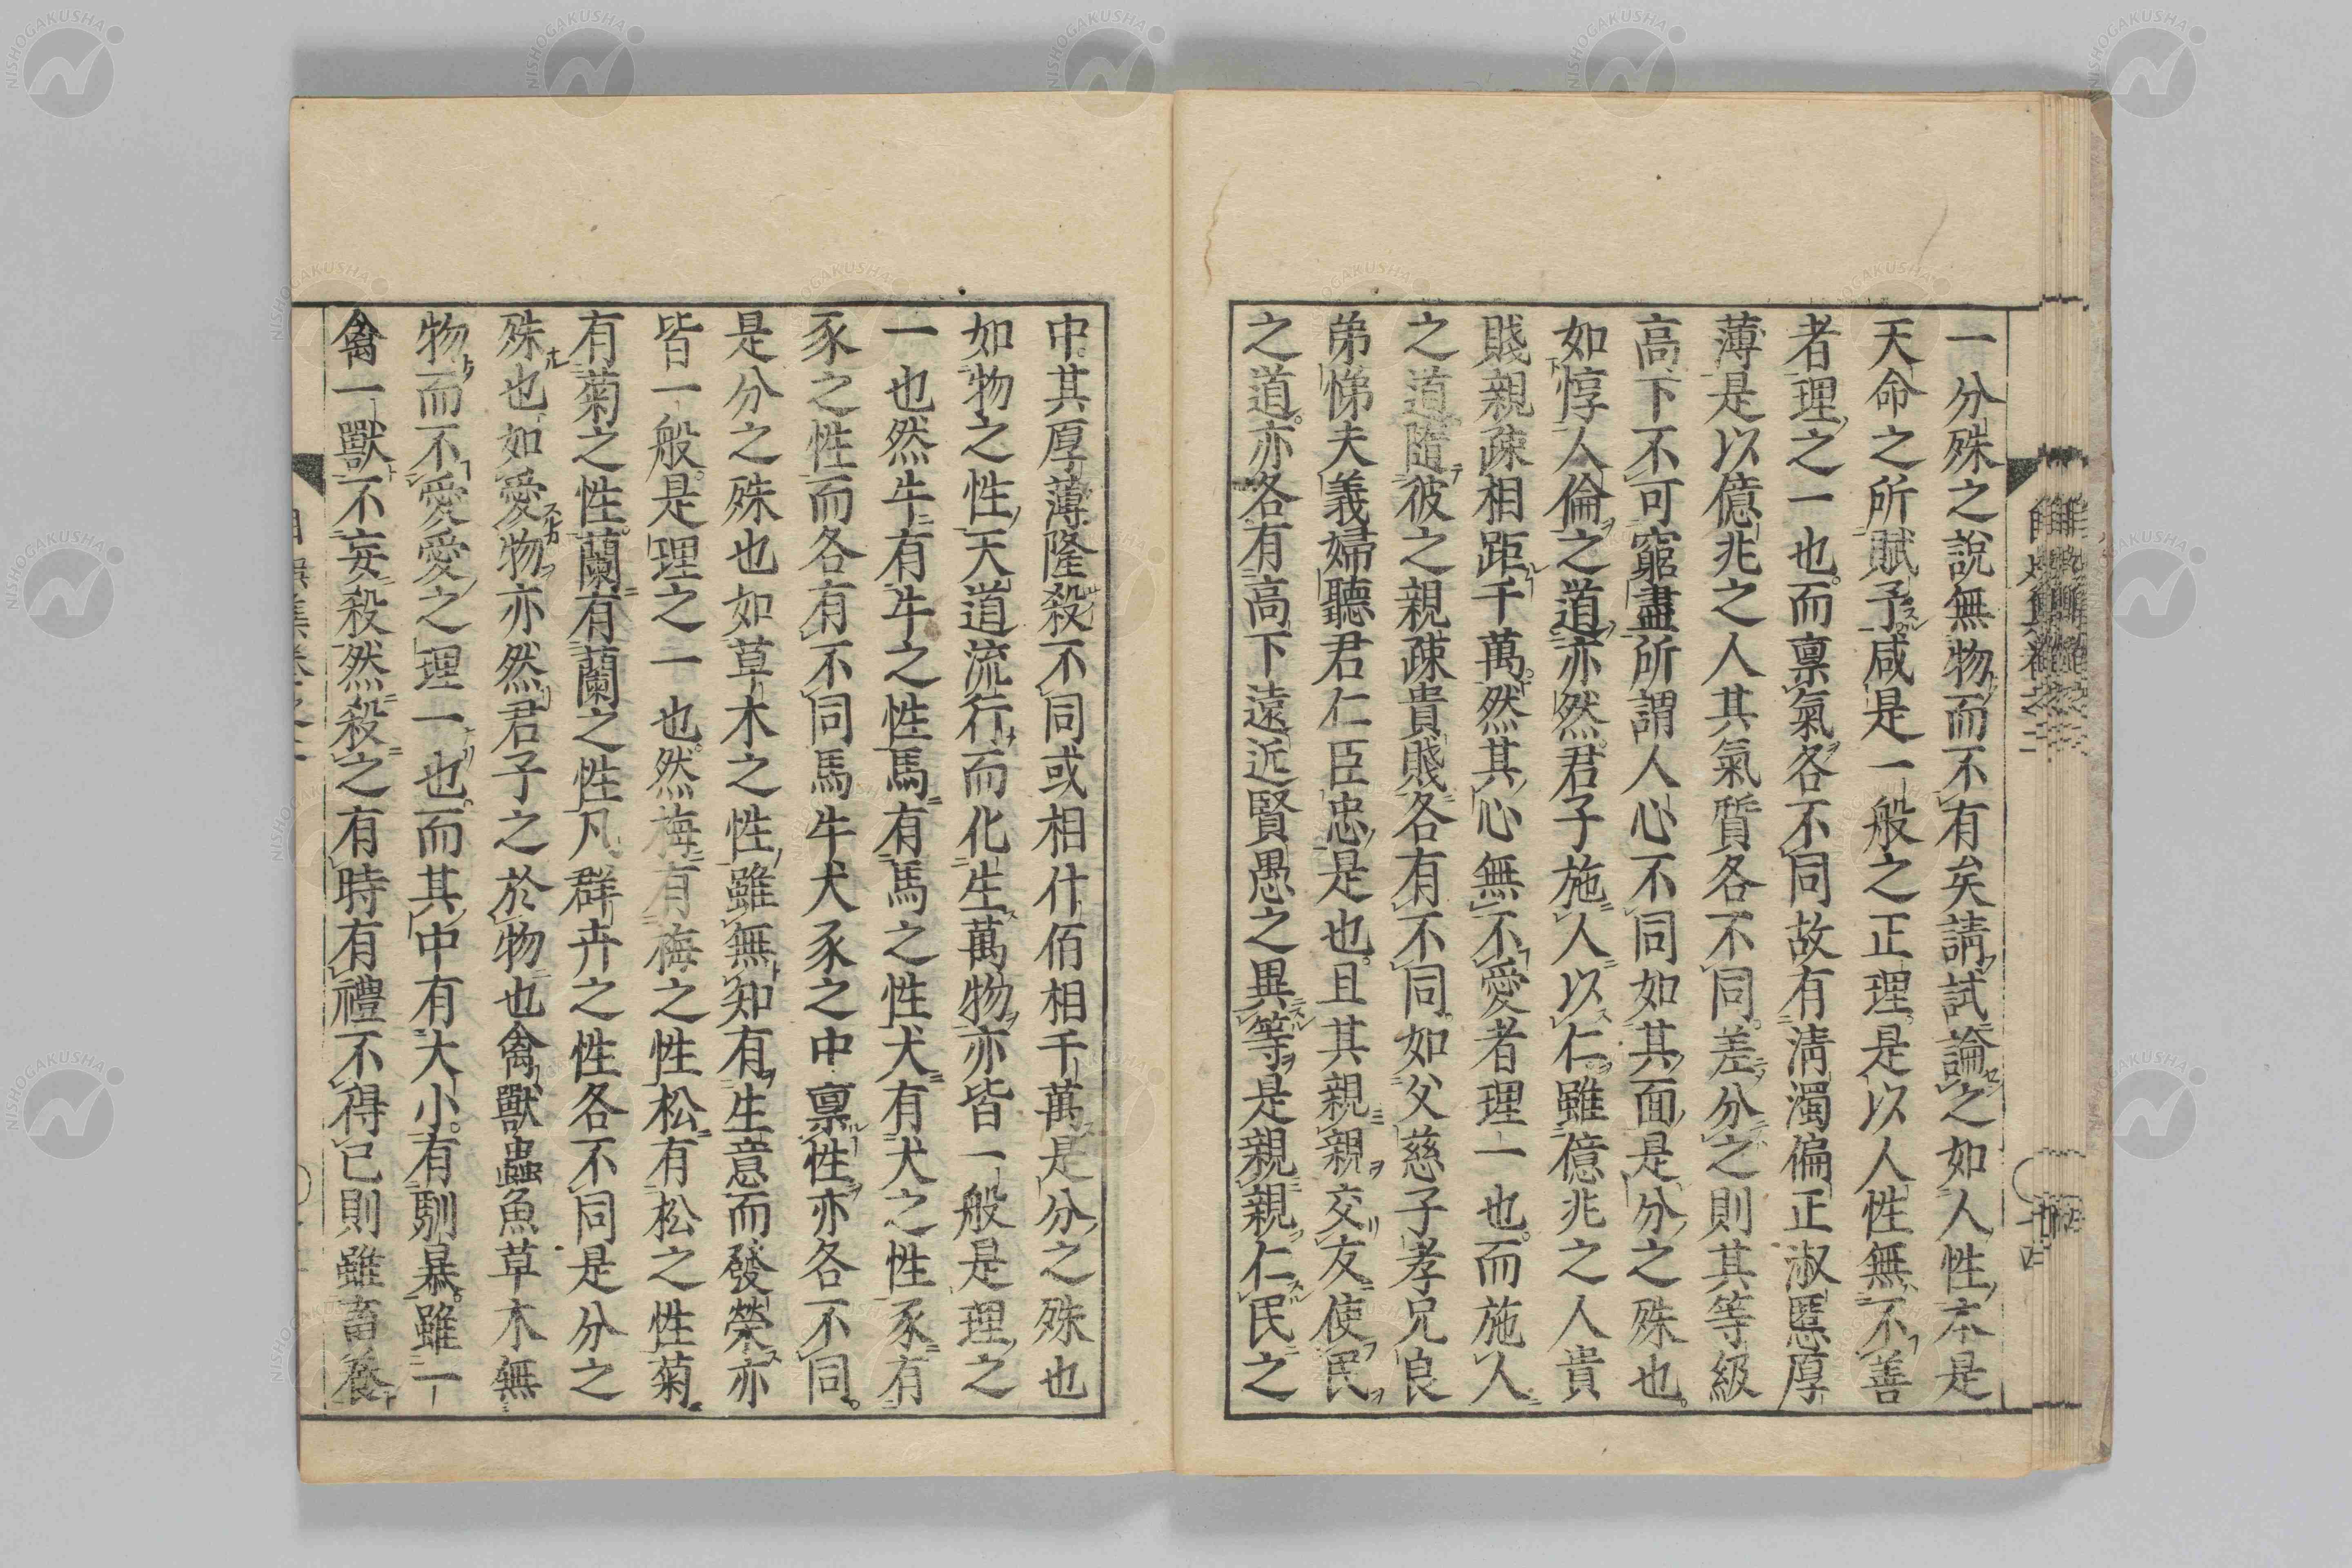 一分殊之說無物而不有矣請試論之如人性本是
天命之所賦予咸是一般之正理是以人性無不善
者理之一也而稟氣各不同故有淸濁偏正淑慝厚
薄是以億兆之人其氣質各不同差分之則其等級
高下不可窮盡所謂人心不同如其面是分之殊也
如惇人倫之道亦然君子施人以仁雖億兆之人貴
賤親疎相距千萬然其心無不愛者理一也而施人
之道隨彼之親疎貴賤各有不同如父慈子孝兄良
弟悌夫義婦聽君仁臣忠是也且其親親交友使民
之道亦各有高下遠近賢愚之異等是親親仁民之
中其厚薄隆殺不同或相什佰相千萬是分之殊也
如物之性天道流行而化生萬物亦皆一般是理之
一也然牛有牛之性馬有馬之性犬有犬之性豕有
豕之性而各有不同馬牛犬豕之中稟性亦各不同
是分之殊也如草木之性雖無知有生意而發榮亦
皆一般是理之一也然梅有梅之性松有松之性菊
有菊之性蘭有蘭之性凡群卉之性各不同是分之
殊也如愛物亦然君子之於物也禽獸蟲魚草木無
物而不愛愛之理一也而其中有大小有馴暴雖一
禽一獸不妄殺然殺之有時有禮不得已則雖畜養